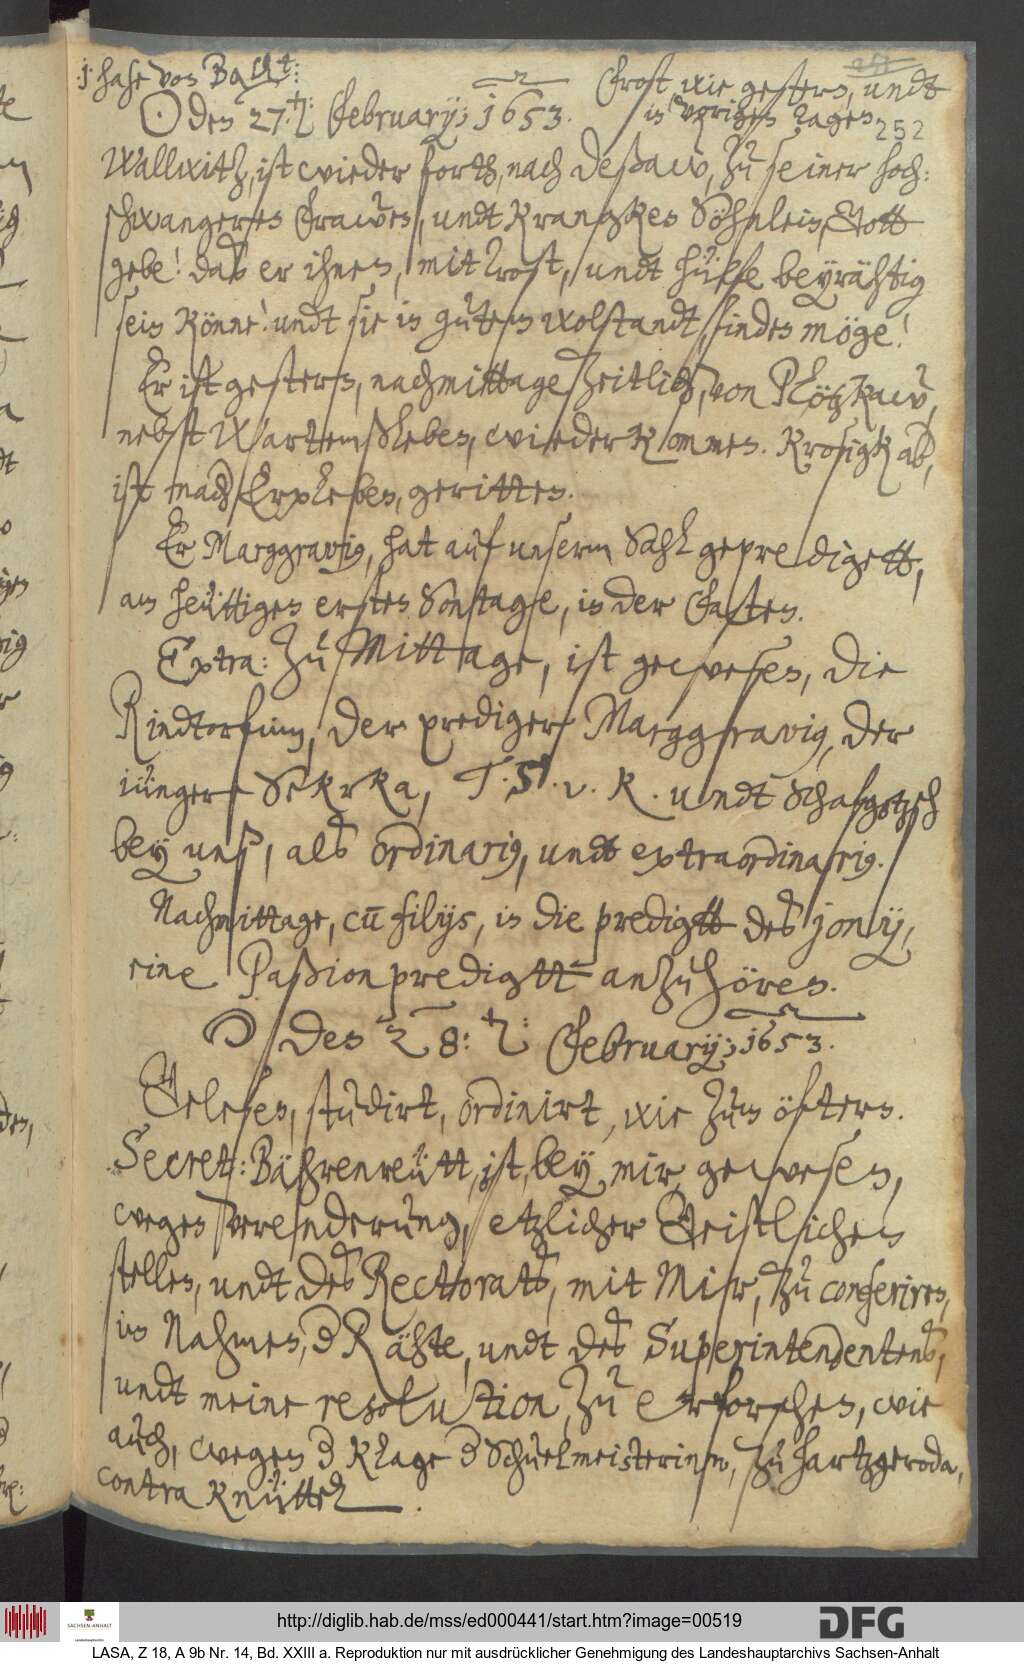 1 hase von Ball:t:
⊙ den 27.ten: February; 1653.
Frost wie gestern, undt
in vorigen Tagen
252
Wallwitz, ist wieder forth, nach Deßaw, zu seiner hoch-
schwangeren Frawen, undt kranckes Söhnlein, Gott
gebe! daß er ihnen, mit trost, undt hülfe beyrähtig
sein könne! undt sie in gutem wolstandt, finden möge!
Er ist gestern, nachmittage zeitlich, von Plötzkaw,
nebst Wartemßleben, wiederkommen. Krosigk ab,
ist nach Erxleben, geritten.
Er Marggravig, hat auf unserm Sahl gepredigett,
am heuttigen ersten Sontage, in der Fasten.
Extra: zu Mittage, ist gewesen, die
Rindtorfinn, der prediger Marggravig, der
iünger Sekrka, T. S. v. K. undt Schafgotzsch
bey unß, als ordinarij, undt extraordinarij.
Nachmittage, cum filijs, in die predigtt des Jonij,
eine Paßionpredigtt anzuhören.
☽ den 28: ten: February; 1653.
Gelesen, studirt, ordinirt, wie zum öftern.
Secret: Bährenreutt, ist, bey mir, gewesen,
wegen verenderung, etzlicher Geistlichen
stellen, undt des Rectorats, mit Mir, zu conferiren,
im Nahmen, d Rähte, undt des Superintendentens,
undt meine resolution, zu erforschen, wie
auch, wegen d klage d Schulmeisterinn, zu Hartzgeroda,
contra Knüttel.
http://diglib.hab.de/mss/ed000441/start.htm?image=00519
SACHSEN-ANHALT
DFG
LASA, Z 18, A 9b Nr. 14, Bd. XXIII a. Reproduktion nur mit ausdrücklicher Genehmigung des Landeshauptarchivs Sachsen-Anhalt